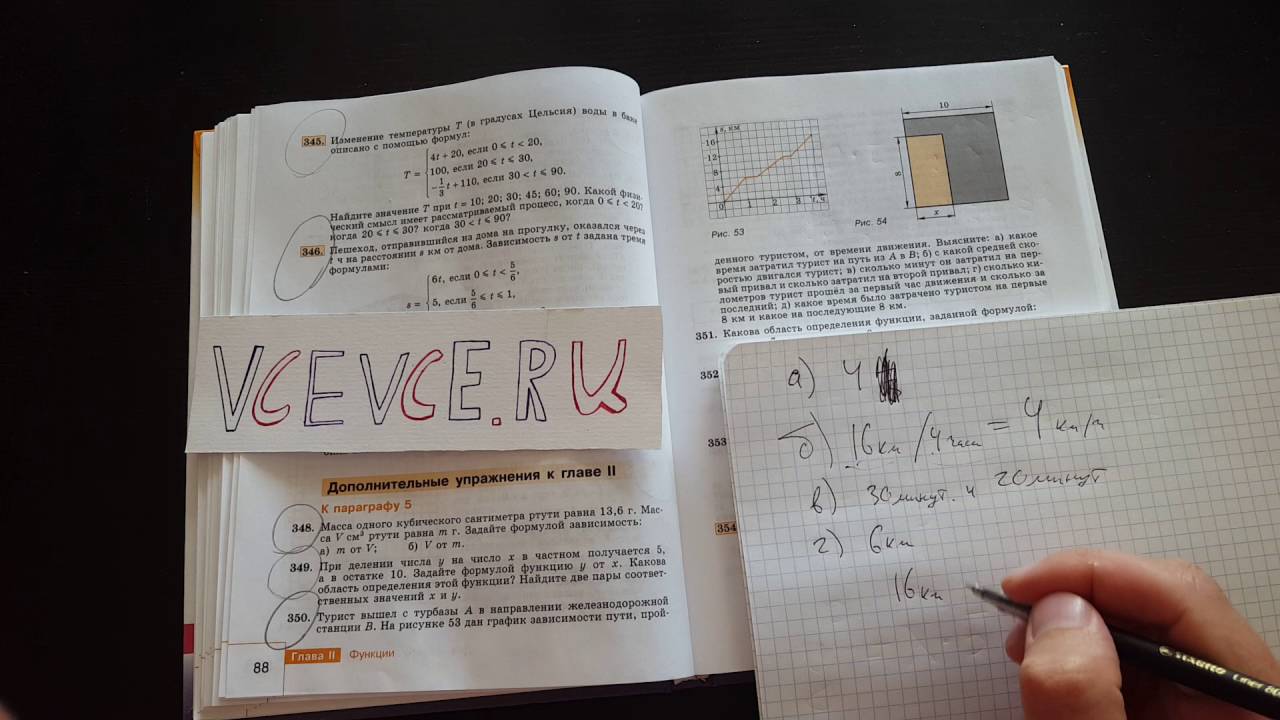 345. Изменение температуры T (в градусах Цельсия) воды в баке
описано с помощью формул:
4t + 20, если 0 ⩽ t < 20,
T = 100, если 20 ⩽ t ⩽ 30,
-1/3 t + 110, если 30 < t ⩽ 90.
Найдите значение T при t = 10; 20; 30; 45; 60; 90. Какой физи-
ческий смысл имеет рассматриваемый процесс, когда 0 ⩽ t < 20?
когда 20 ⩽ t ⩽ 30? когда 30 < t ⩽ 90?
346. Пешеход, отправившийся из дома на прогулку, оказался через
t ч на расстоянии s км от дома. Зависимость s от t задана тремя
формулами:
6t, если 0 ⩽ t < 5/6,
s = 5, если 5/6 ⩽ t ⩽ 1,
VCEVCE.RU
Дополнительные упражнения к главе II
К параграфу 5
348. Масса одного кубического сантиметра ртути равна 13,6 г. Мас-
са V см³ ртути равна m г. Задайте формулой зависимость:
а) m от V; б) V от m.
349. При делении числа y на число x в частном получается 5,
а в остатке 10. Задайте формулой функцию y от x. Какова
область определения этой функции? Найдите две пары соответ-
ственных значений x и y.
350. Турист вышел с турбазы A в направлении железнодорожной
станции B. На рисунке 53 дан график зависимости пути, прой-
88 Глава II Функции
s, км
16
12
8
4
0 1 2 3 t, ч
Рис. 53
10
8
x
Рис. 54
денного туристом, от времени движения. Выясните: а) какое
время затратил турист на путь из A в B; б) с какой средней ско-
ростью двигался турист; в) сколько минут он затратил на пер-
вый привал и сколько затратил на второй привал; г) сколько ки-
лометров турист прошёл за первый час движения и сколько за
последний; д) какое время было затрачено туристом на первые
8 км и какое на последующие 8 км.
351. Какова область определения функции, заданной формулой:
352
353
354
а) 4
б) 16 км / 4 часа = 4 км/ч
в) 30 минут. и 20 минут
г) 6 км
16 км